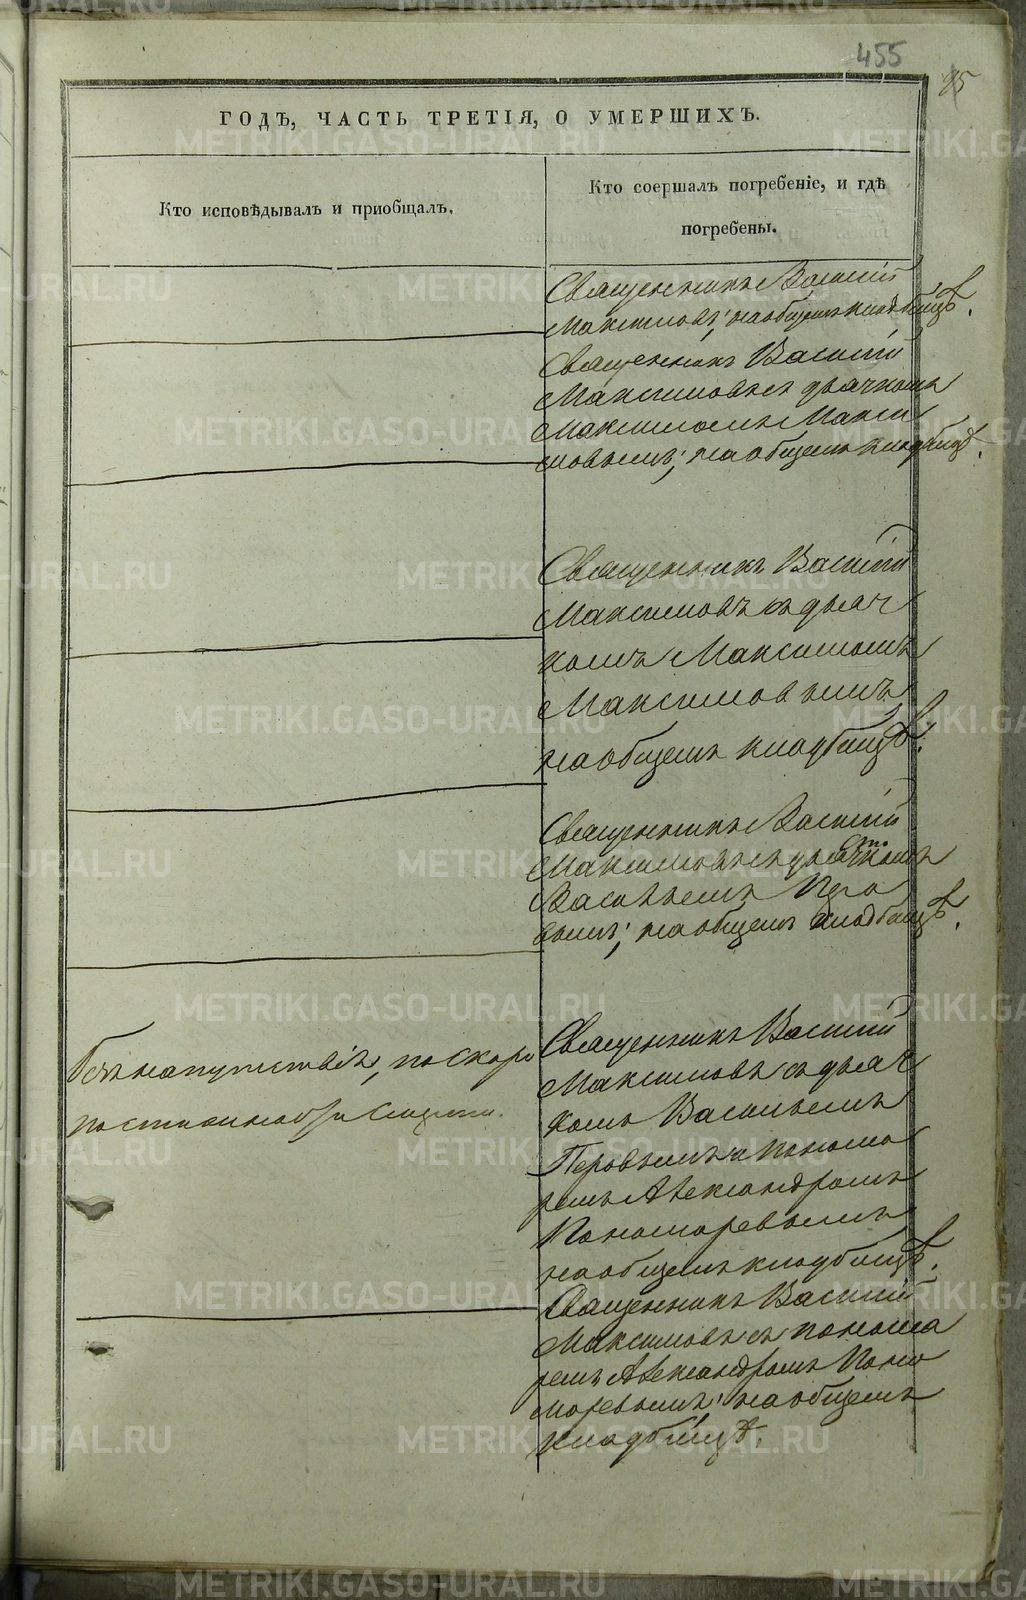 455
ГОДЪ, ЧАСТЬ ТРЕТІЯ, О УМЕРШИХЪ.
Кто исповѣдывалъ и приобщалъ.
Кто соершалъ погребеніе, и гдѣ
погребены.
Священникъ Василій
Максимовъ; на общемъ кладбищѣ.
Священникъ Василій
Максимовъ съ дьячкомъ
Максимомъ Макси
мовымъ; на общемъ кладбищѣ.
Священникъ Василій
Максимовъ съ дьяч
комъ Максимомъ
Максимовымъ
на общемъ кладбищѣ.
Священникъ Василій
Максимовъ съ дьячкомъ
Васильемъ
на общемъ кладбищѣ.
Безъ напутствія, по скоро
Священникъ Василій
Максимовъ съ дьяч
комъ Васильемъ
Перовымъ и понома
ремъ Александромъ
Пономаревымъ
на общемъ кладбищѣ.
Священникъ Василій
Максимовъ съ понома
ремъ Александромъ Поно
маревымъ; на общемъ
кладбищѣ.
METRIKI.GASO-URAL.RU